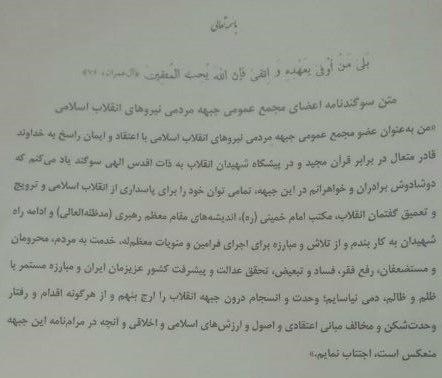 باسمه‌تعالی
بَلی مَنْ أَوْفی بِعَهْدِهِ وَ اتَّقی فَإِنَّ اللهَ یُحِبُّ الْمُتَّقینَ «آل‌عمران، ۷۶»
متن سوگندنامه اعضای مجمع عمومی جبهه مردمی نیروهای انقلاب اسلامی
«من به‌عنوان عضو مجمع عمومی جبهه مردمی نیروهای انقلاب اسلامی با اعتقاد و ایمان راسخ به خداوند
قادر متعال در برابر قرآن مجید و در پیشگاه شهیدان انقلاب به ذات اقدس الهی سوگند یاد می‌کنم که
دوشادوش برادران و خواهرانم در این جبهه، تمامی توان خود را برای پاسداری از انقلاب اسلامی و ترویج
و تعمیق گفتمان انقلاب، مکتب امام خمینی (ره)، اندیشه‌های مقام معظم رهبری (مدظله‌العالی) و ادامه راه
شهیدان به کار بندم و از تلاش و مبارزه برای اجرای فرامین و منویات معظم‌له، خدمت به مردم، محرومان
و مستضعفان، رفع فقر، فساد و تبعیض، تحقق عدالت و پیشرفت کشور عزیزمان ایران و مبارزه مستمر با
ظلم و ظالم، دمی نیاسایم؛ وحدت و انسجام درون جبهه انقلاب را ارج بنهم و از هرگونه اقدام و رفتار
وحدت‌شکن و مخالف مبانی اعتقادی و اصول و ارزش‌های اسلامی و اخلاقی و آنچه در مرام‌نامه این جبهه
منعکس است، اجتناب نمایم.»